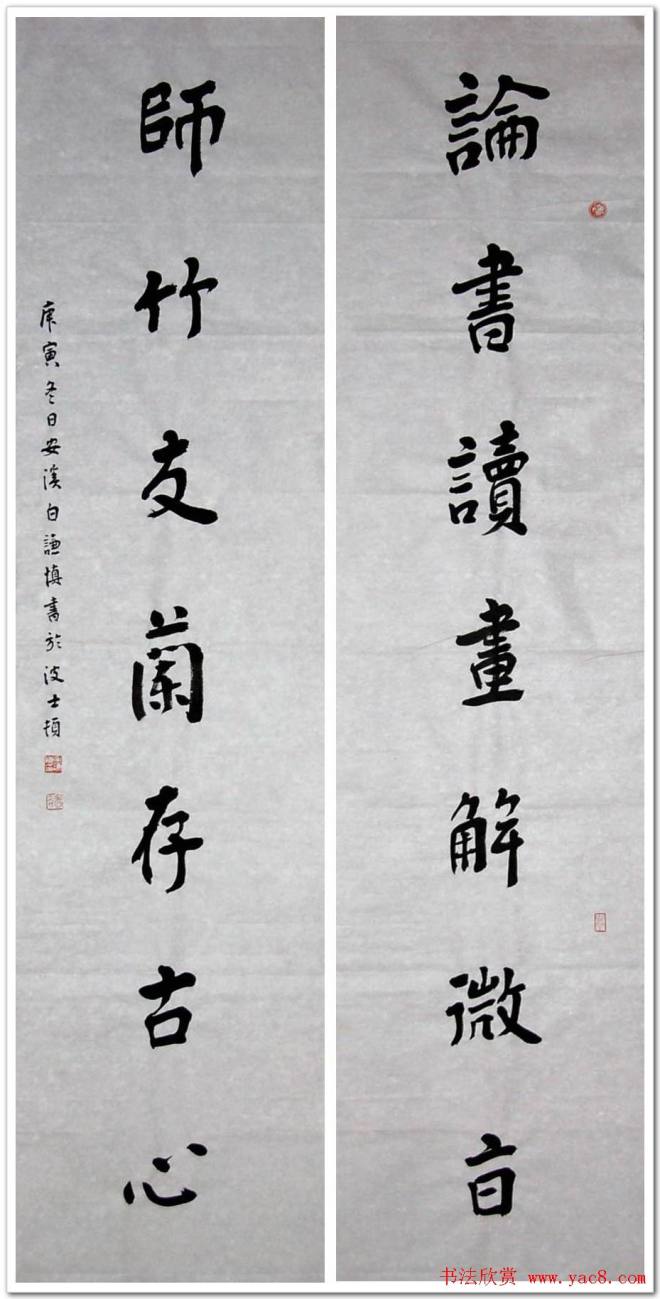 論書讀畫解微旨
師竹友蘭存古心
庚寅冬日安溪白謙慎書於波士頓
书法欣赏 www.yac8.com